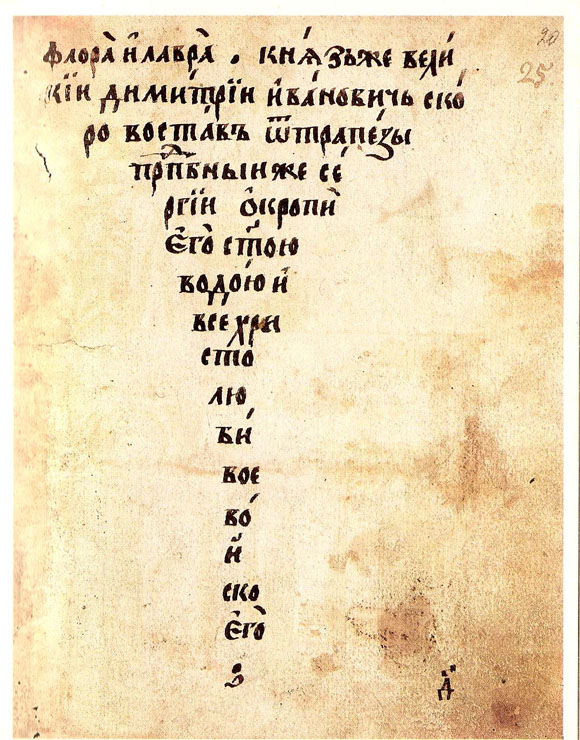 20
25
флора̀ и҆лавра̀ . кнѧ́зьже вели́
кїи дими́трїи и҆ва́новичь ско́
ро воста́въ ѿтрапе́зы
прⷣпбныиже се́
ргїи ѻ҆кропѝ
є҆го̀ ст҃ою
водо́ю и҆
все хри
сто
лю
би́
вое
во́
й
ско
є҆го̀
з
д